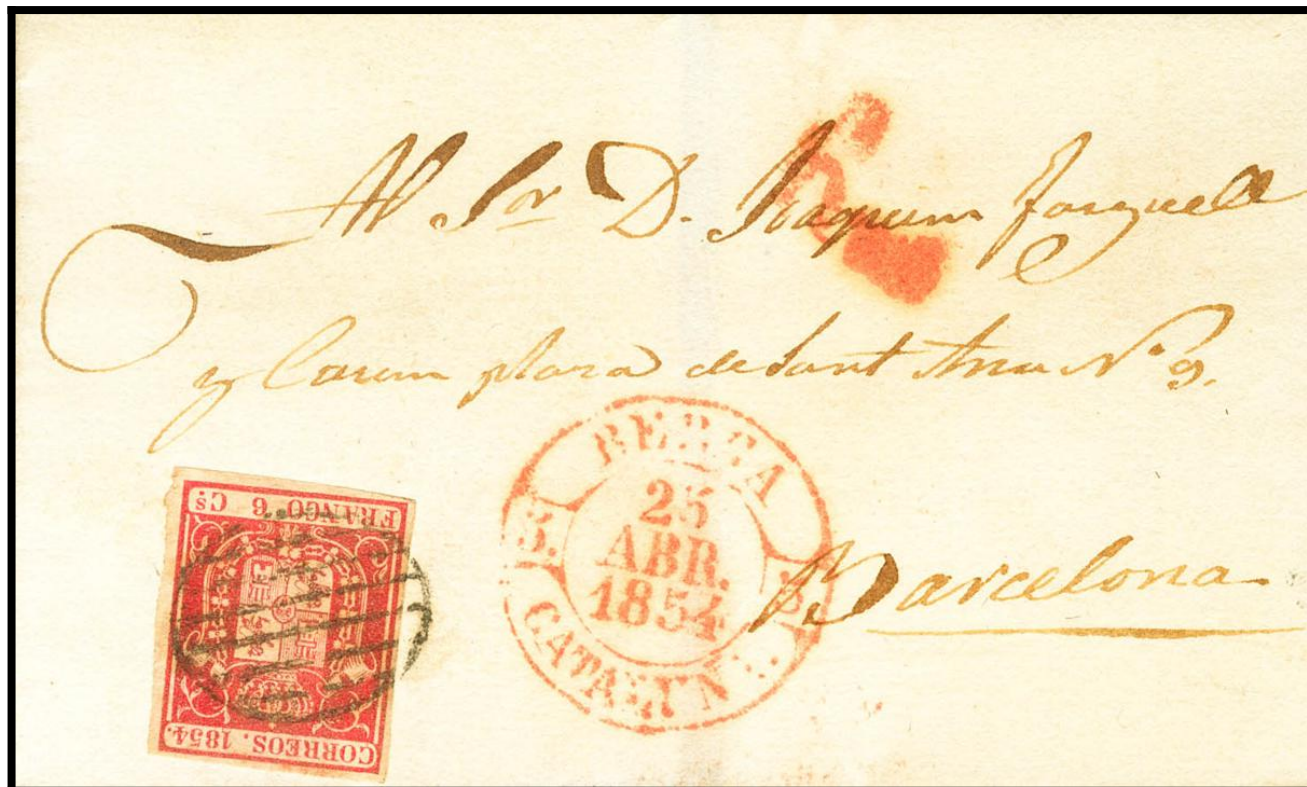 Al Sor D. Joaquim
y plaza de Sant Ana Nº 9.
Barcelona
BERGA
25
ABR.
1854
CATALUÑA
FRANCO 6 Cs
CORREOS. 1854.